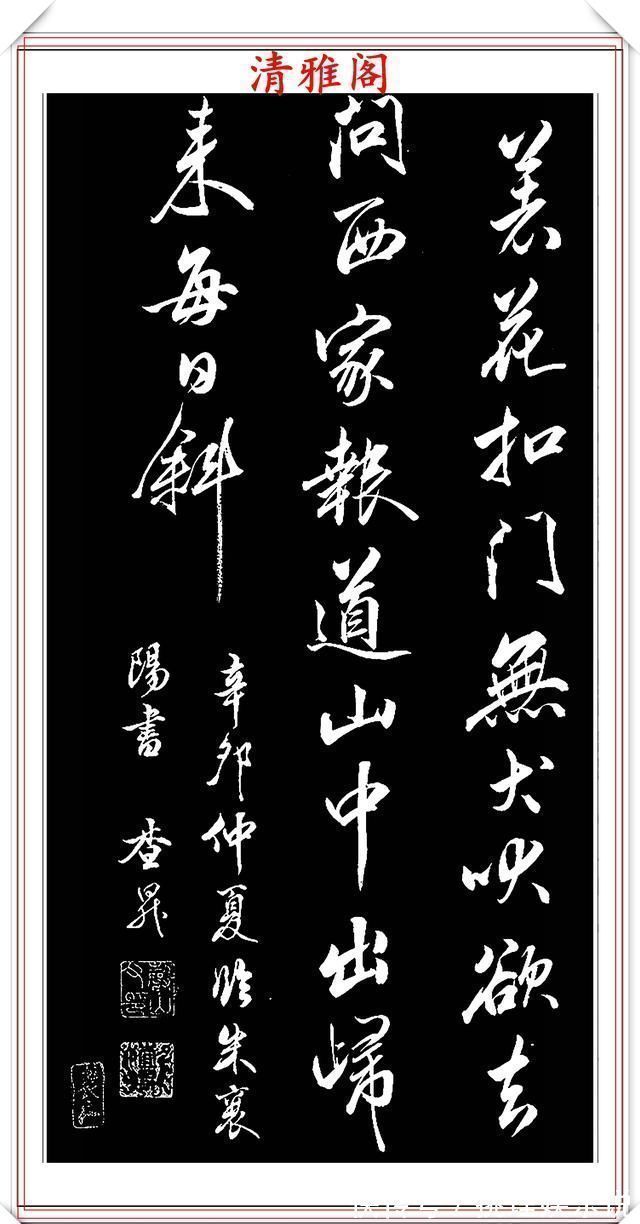 清雅阁
着花扣门無犬吠欲去
问西家報道山中出歸
来每日斜
辛卯仲夏临米襄
陽書 查昇